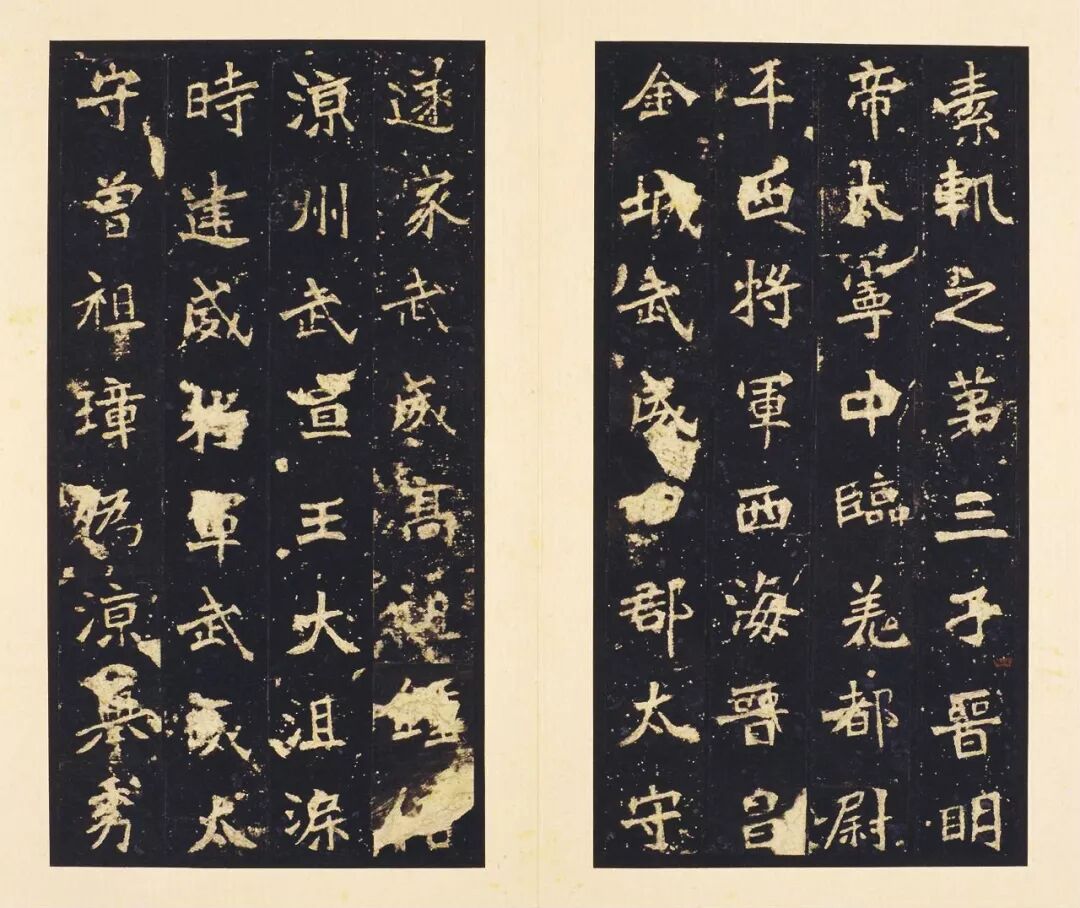 素軌之苐三子晉明
帝太寧中臨羌都尉
平西將軍西海晉昌
金城武威郡太守
遂家武威高祖鍾
涼州武宣王大沮渠
時建威將軍武威太
守曾祖璋偽涼舉秀